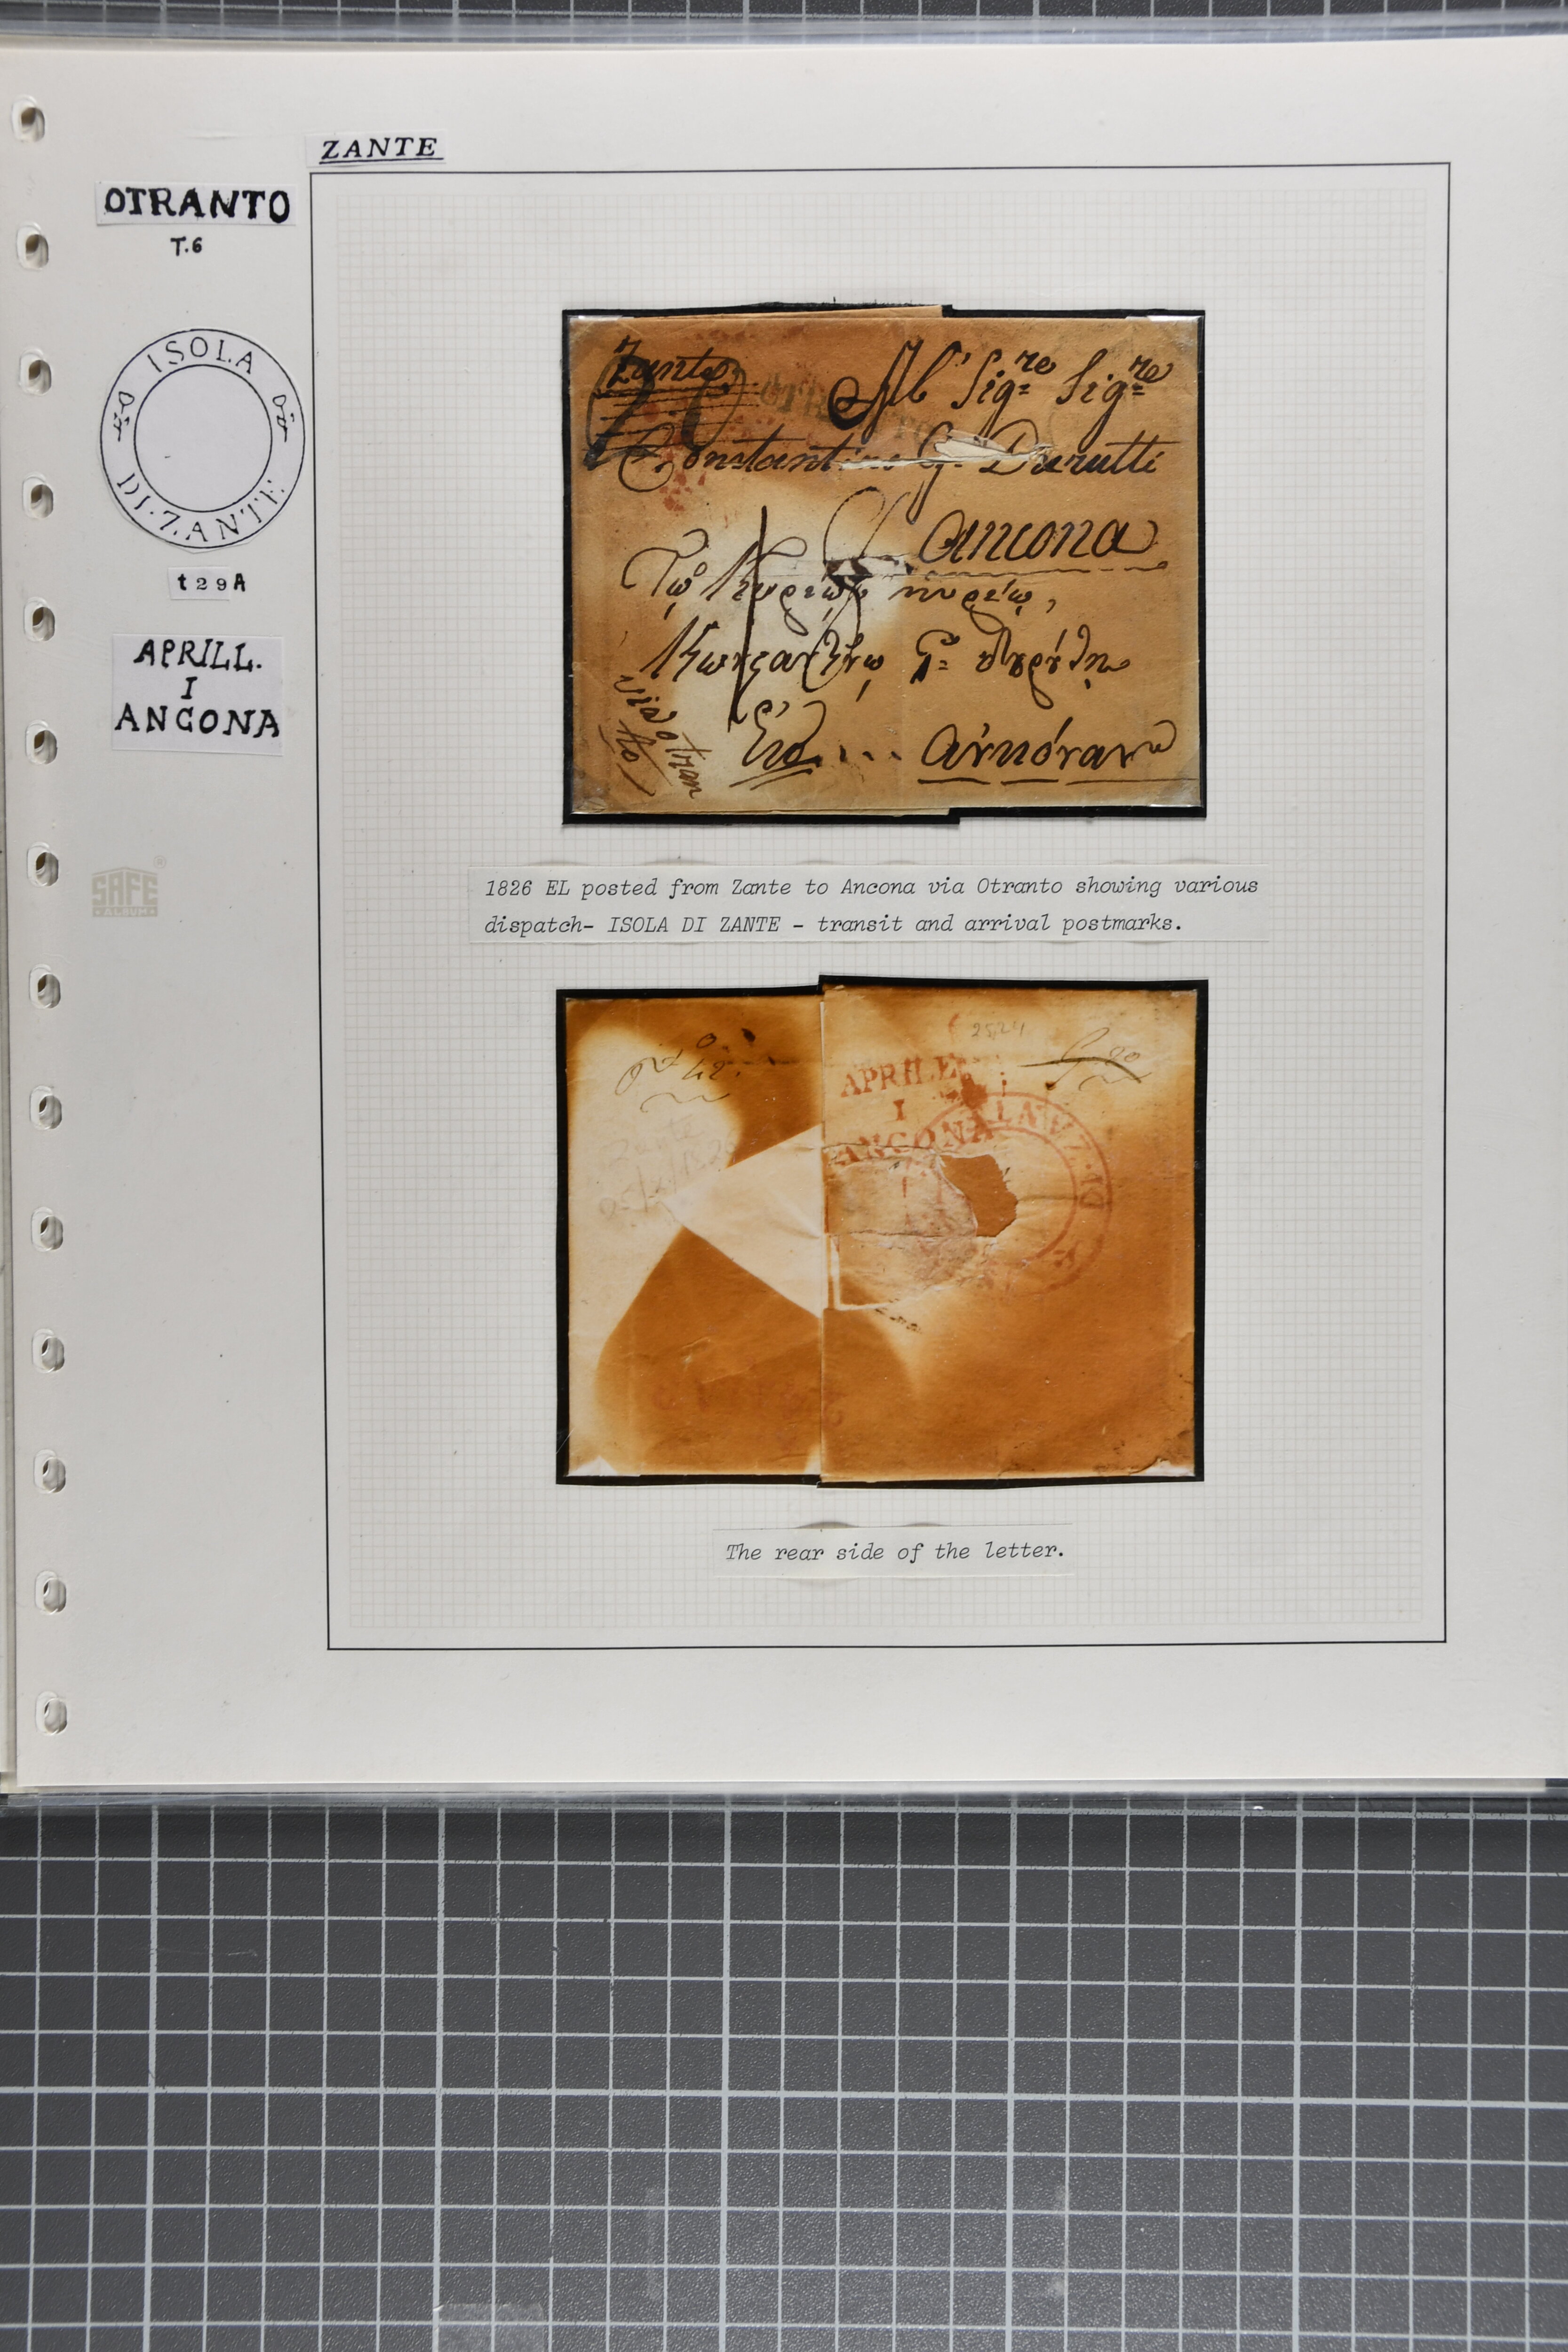 ZANTE
OTRANTO
T.6
ISOLA
DI.ZANTE
t29A
APRILL.
I
ANCONA
SAFE
ALBUM
Zante
Al' Sig=re Sig=re
Constantino G= Durutti
Ancona
Τῷ Κυρίῳ κυρίῳ,
Κωνςαντίνῳ Γ= Δȣρȣ́τῃ
Εἰς ... ἀνκόναν
via otran
to
1826 EL posted from Zante to Ancona via Otranto showing various
dispatch- ISOLA DI ZANTE - transit and arrival postmarks.
2524
APRILE
I
ANCONA
Zante
The rear side of the letter.